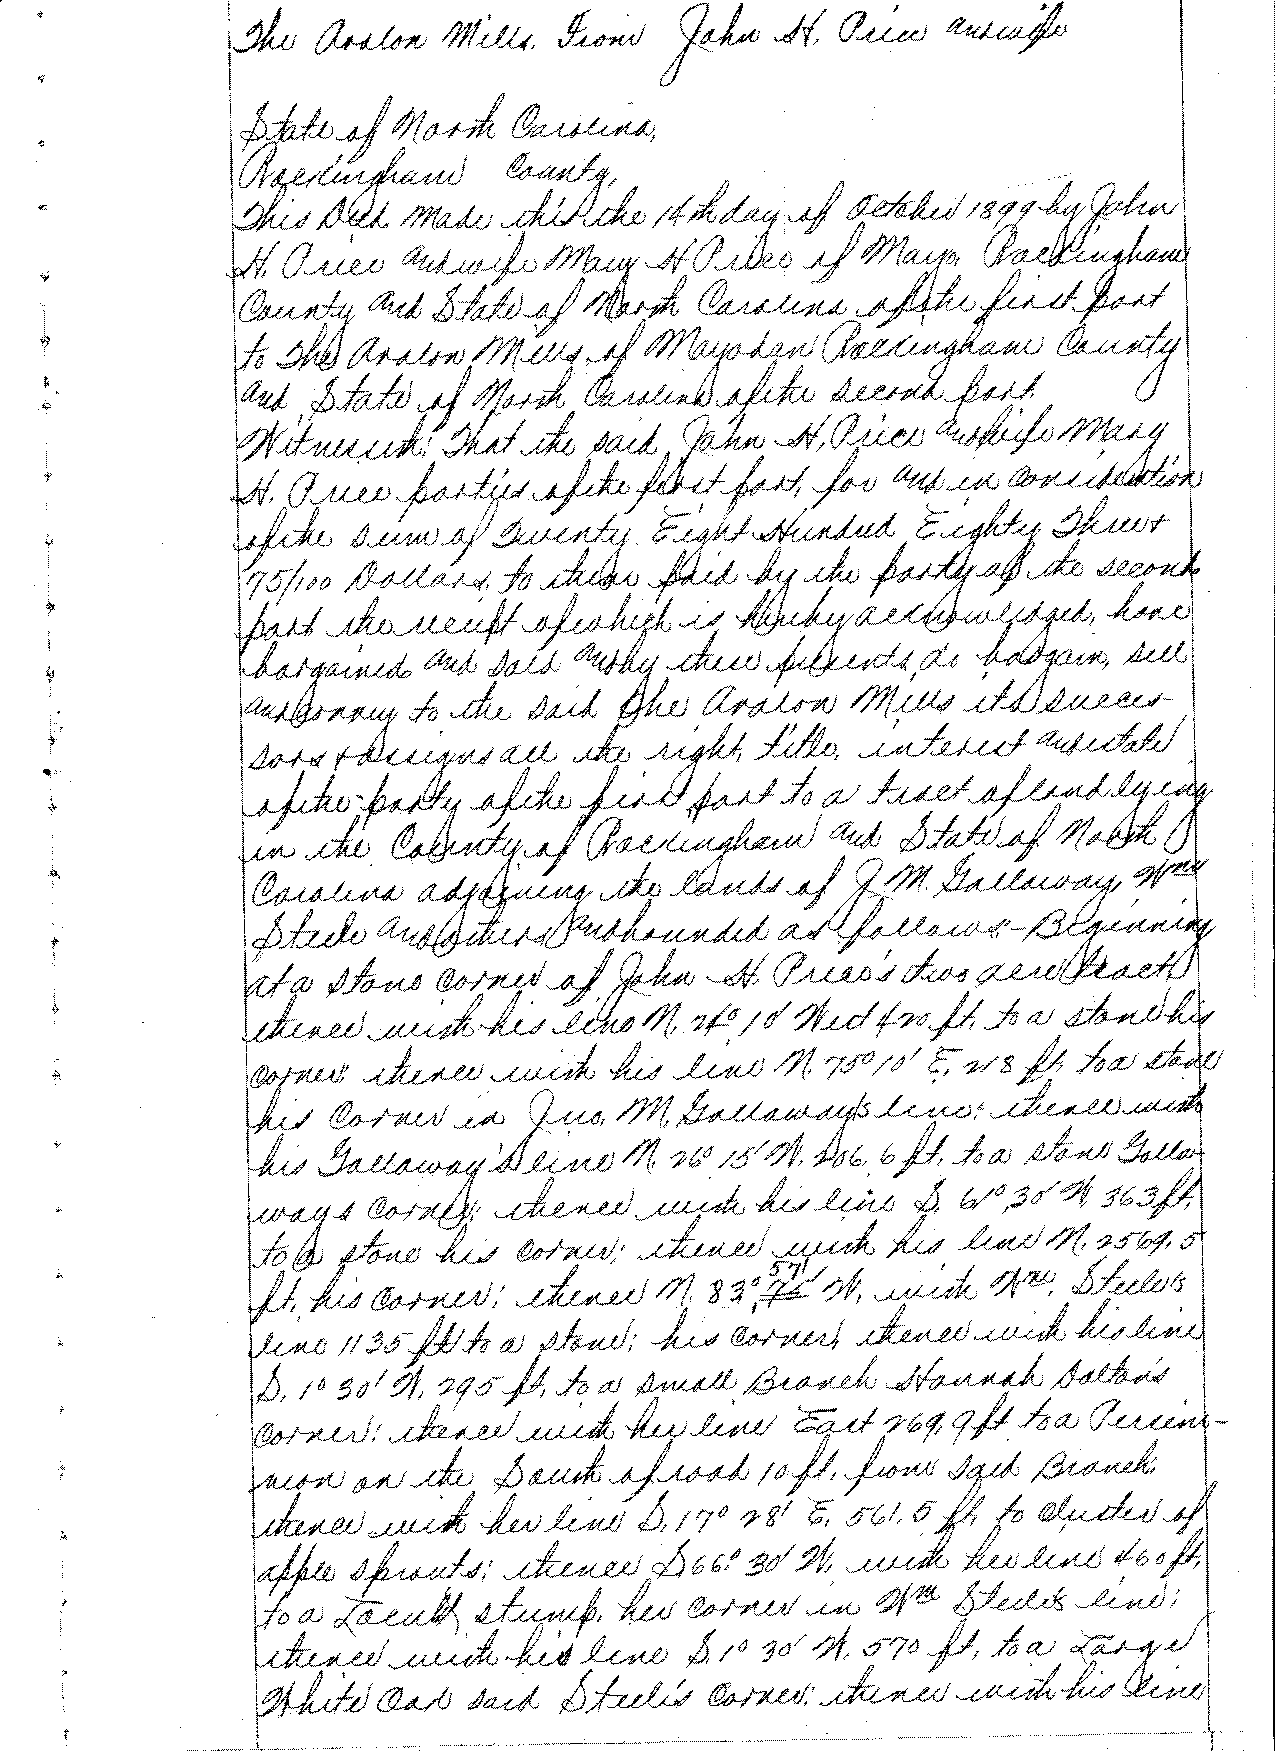 The Avalon Mills. From John H. Price and wife
State of North Carolina,
Rockingham County,
This Deed made this the 14th day of October 1899 by John
H. Price and wife Mary H Price of Mayo, Rockingham
County and State of North Carolina of the first part
to The Avalon Mills, of Mayodan Rockingham County
and State of North Carolina of the second part.
Witnesseth: That the said John H. Price and wife Mary
H. Price parties of the first part, for and in consideration
of the sum of Twenty Eight Hundred Eighty Three &
75/100 Dollars, to them paid by the party of the second
part the receipt of which is hereby acknowledged, have
bargained and sold and by these presents do bargain, sell
and convey to the said The Avalon Mills its succes-
sors & assigns all the right, title, interest and estate
of the party of the first part to a tract of land lying
in the County of Rockingham and State of North
Carolina adjoining the lands of J. M. Galloway, Wm
Steele and others and bounded as follows - Beginning
at a stone corner of John H. Price's two acre tract
thence with his line N. 24° 10' West 420 ft. to a stone his
corner; thence with his line N. 75° 10' E. 218 ft. to a stone
his corner in Jno. M. Galloway's line; thence with
his Galloway's line N. 26° 15' W. 206.6 ft. to a stone Gallo-
ways corner; thence with his line S. 61° 30' W. 363 ft.
to a stone his corner; thence with his line N. 2569.5
ft. his corner; thence N. 83° 57' W. with Wm. Steele's
line 1135 ft to a stone; his corner, thence with his line
S. 1° 30' W. 295 ft. to a small Branch Hannah Dalton's
corner; thence with her line East 269.9 ft to a Persim-
mon on the South of road 10 ft. from said Branch.
thence with her line S. 17° 28' E. 561.5 ft. to cluster of
apple sprouts; thence S 66° 30' W. with her line 460 ft.
to a Locust stump, her corner in Wm Steele's line;
thence with his line S. 1° 30' W. 570 ft. to a Large
White Oak said Steele's corner; thence with his line